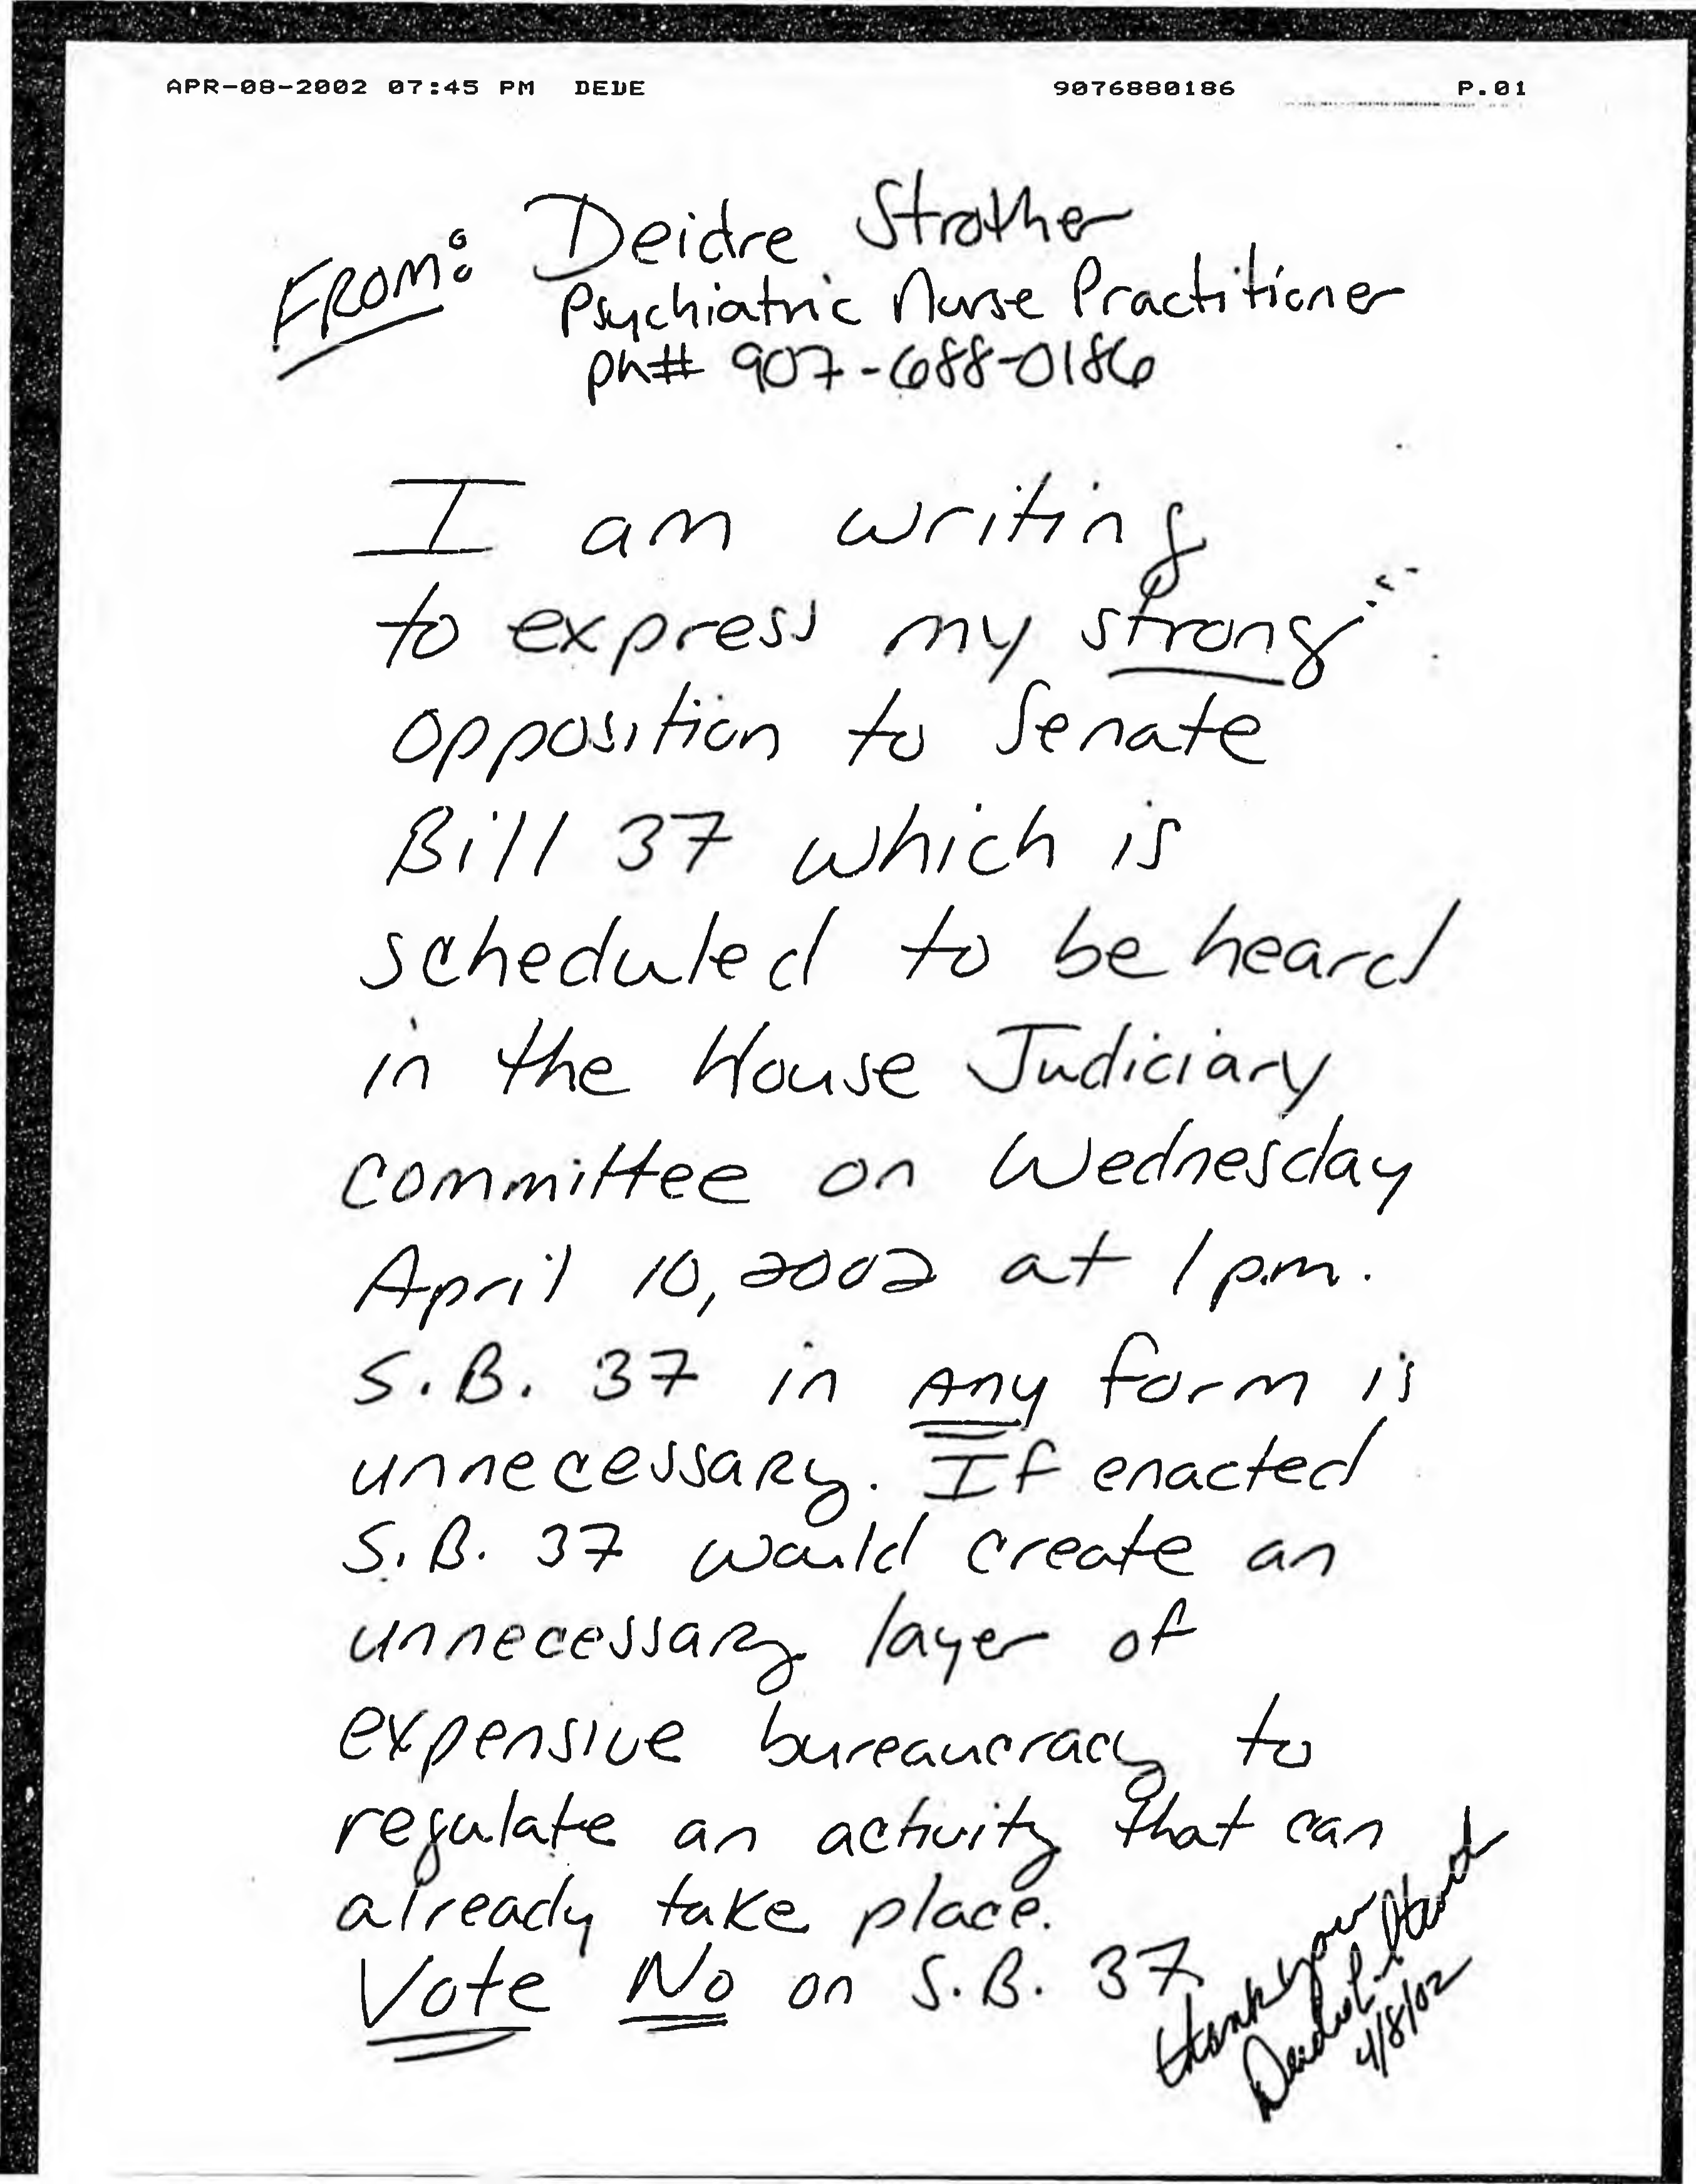 APR-08-2002 07:45 PM DEDE 9076880186 P.01
FROM: Deidre Strother
Psychiatric Nurse Practitioner
ph# 907-688-0186
I am writing
to express my strong
opposition to Senate
Bill 37 which is
scheduled to be heard
in the House Judiciary
committee on Wednesday
April 10, 2002 at 1 p.m.
S.B. 37 in Any form is
unnecessary. If enacted
S.B. 37 would create an
unnecessary layer of
expensive bureaucracy to
regulate an activity that can
already take place.
Vote No on S.B. 37
thank you
4/8/02